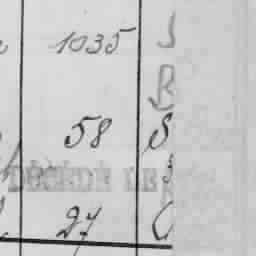 1035 S
B
58 S
DÉCÉDÉ LE
27